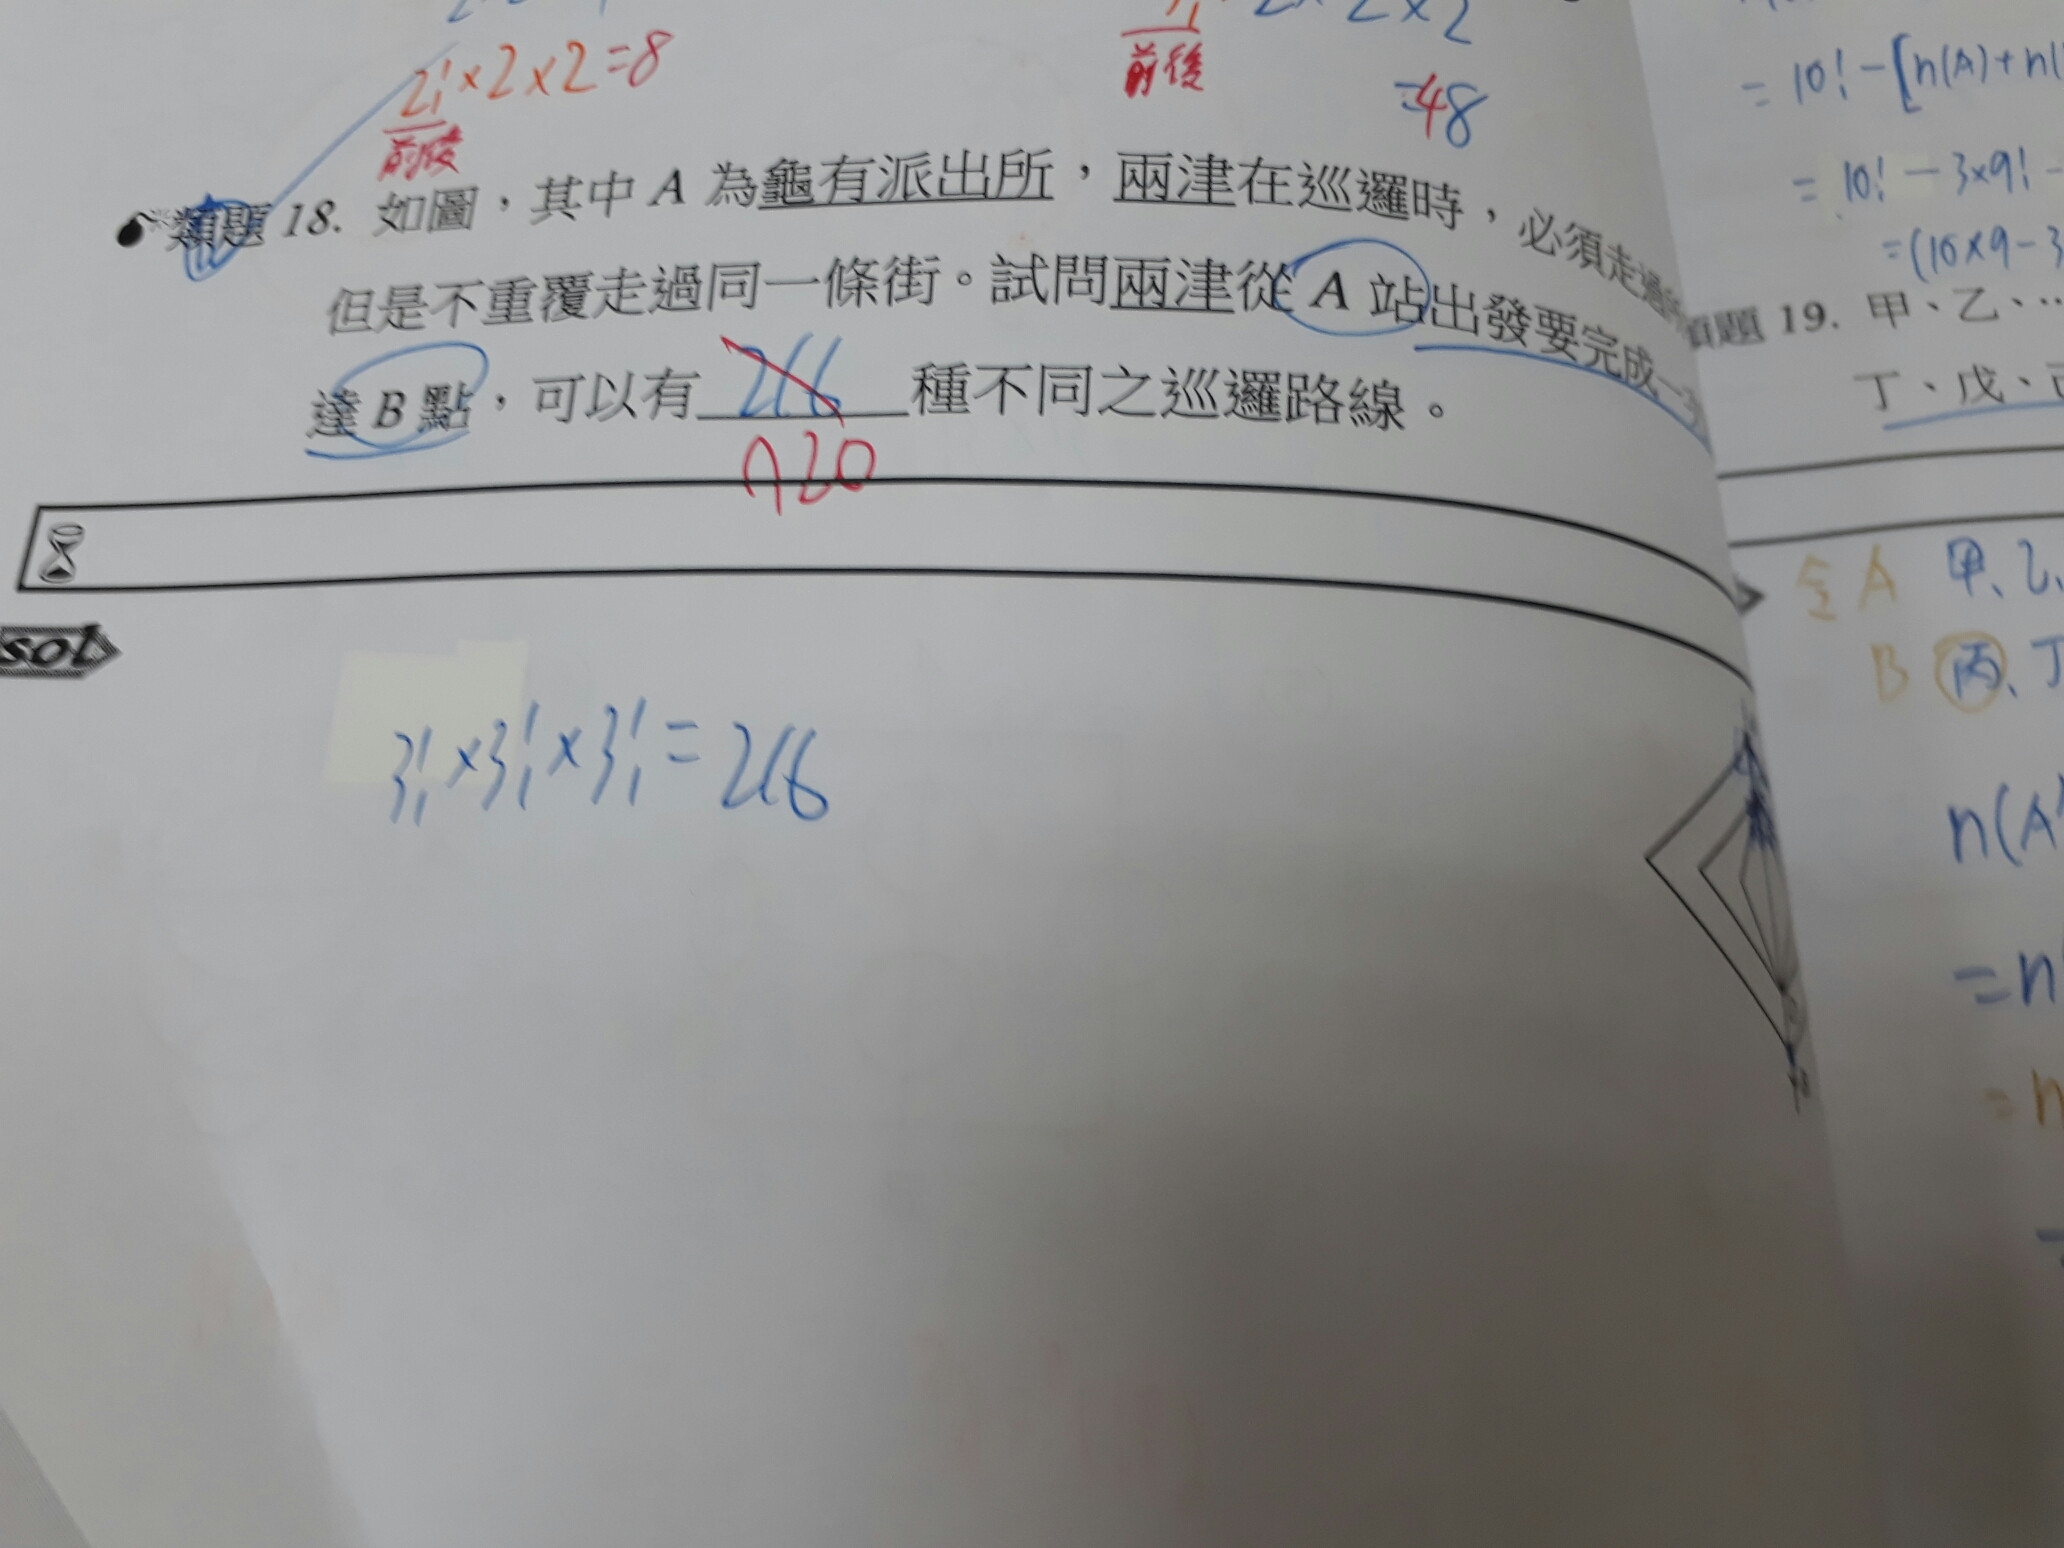 2!×2×2=8
前後
前後
×2×2
=48
= 10! - [n(A)+n(
= 10! - 3×9! -
=(10×9-3
類題 18. 如圖，其中 A 為龜有派出所，兩津在巡邏時，必須走過
但是不重覆走過同一條街。試問兩津從 A 站出發要完成一
達 B 點，可以有 216 種不同之巡邏路線。
720
類題 19. 甲、乙、…
丁、戊、
sol
3!×3!×3!=216
A 甲、乙、
B 丙、丁
n(A
=n
=n